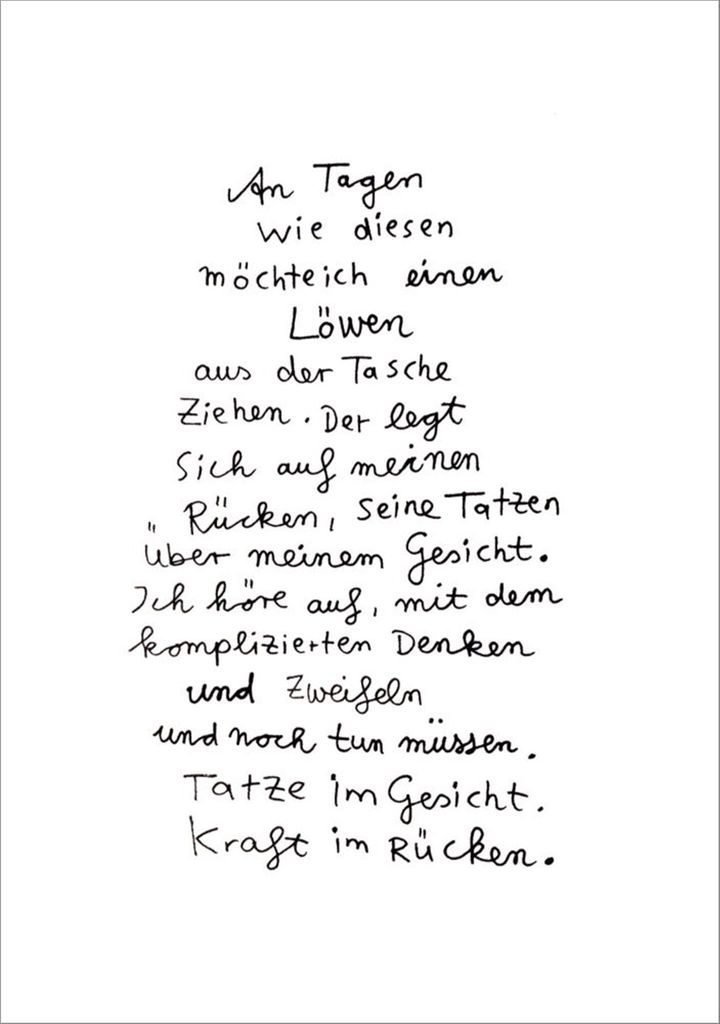 An Tagen
wie diesen
möchte ich einen
Löwen
aus der Tasche
Ziehen. Der legt
Sich auf meinen
Rücken, seine Tatzen
über meinem Gesicht.
Ich höre auf, mit dem
komplizierten Denken
und Zweifeln
und noch tun müssen.
Tatze im Gesicht.
Kraft im Rücken.